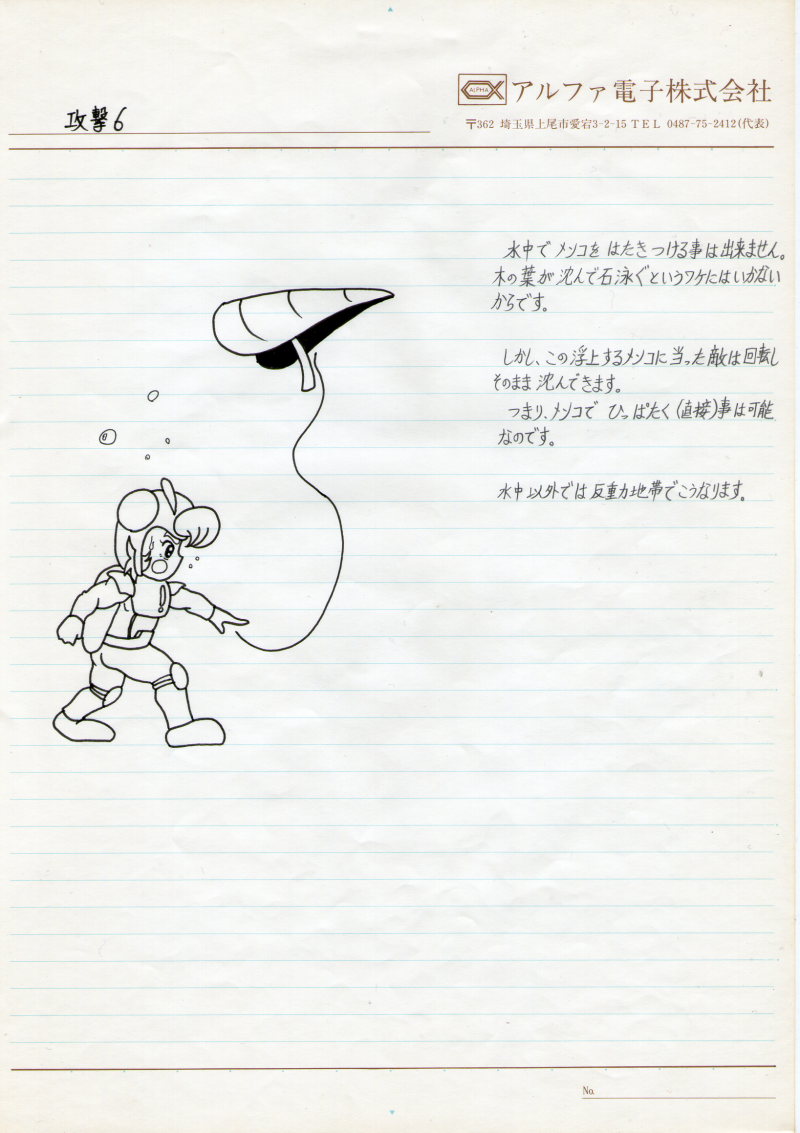 攻撃6
ALPHA
アルファ電子株式会社
〒362 埼玉県上尾市愛宕3-2-15 TEL 0487-75-2412(代表)
水中でメンコをはたきつける事は出来ません。
木の葉が沈んで石泳ぐというワケにはいかない
からです。
しかし、この浮上するメンコに当った敵は回転し
そのまま沈んできます。
つまり、メンコでひっぱたく(直接)事は可能
なのです。
水中以外では反重力地帯でこうなります。
No.